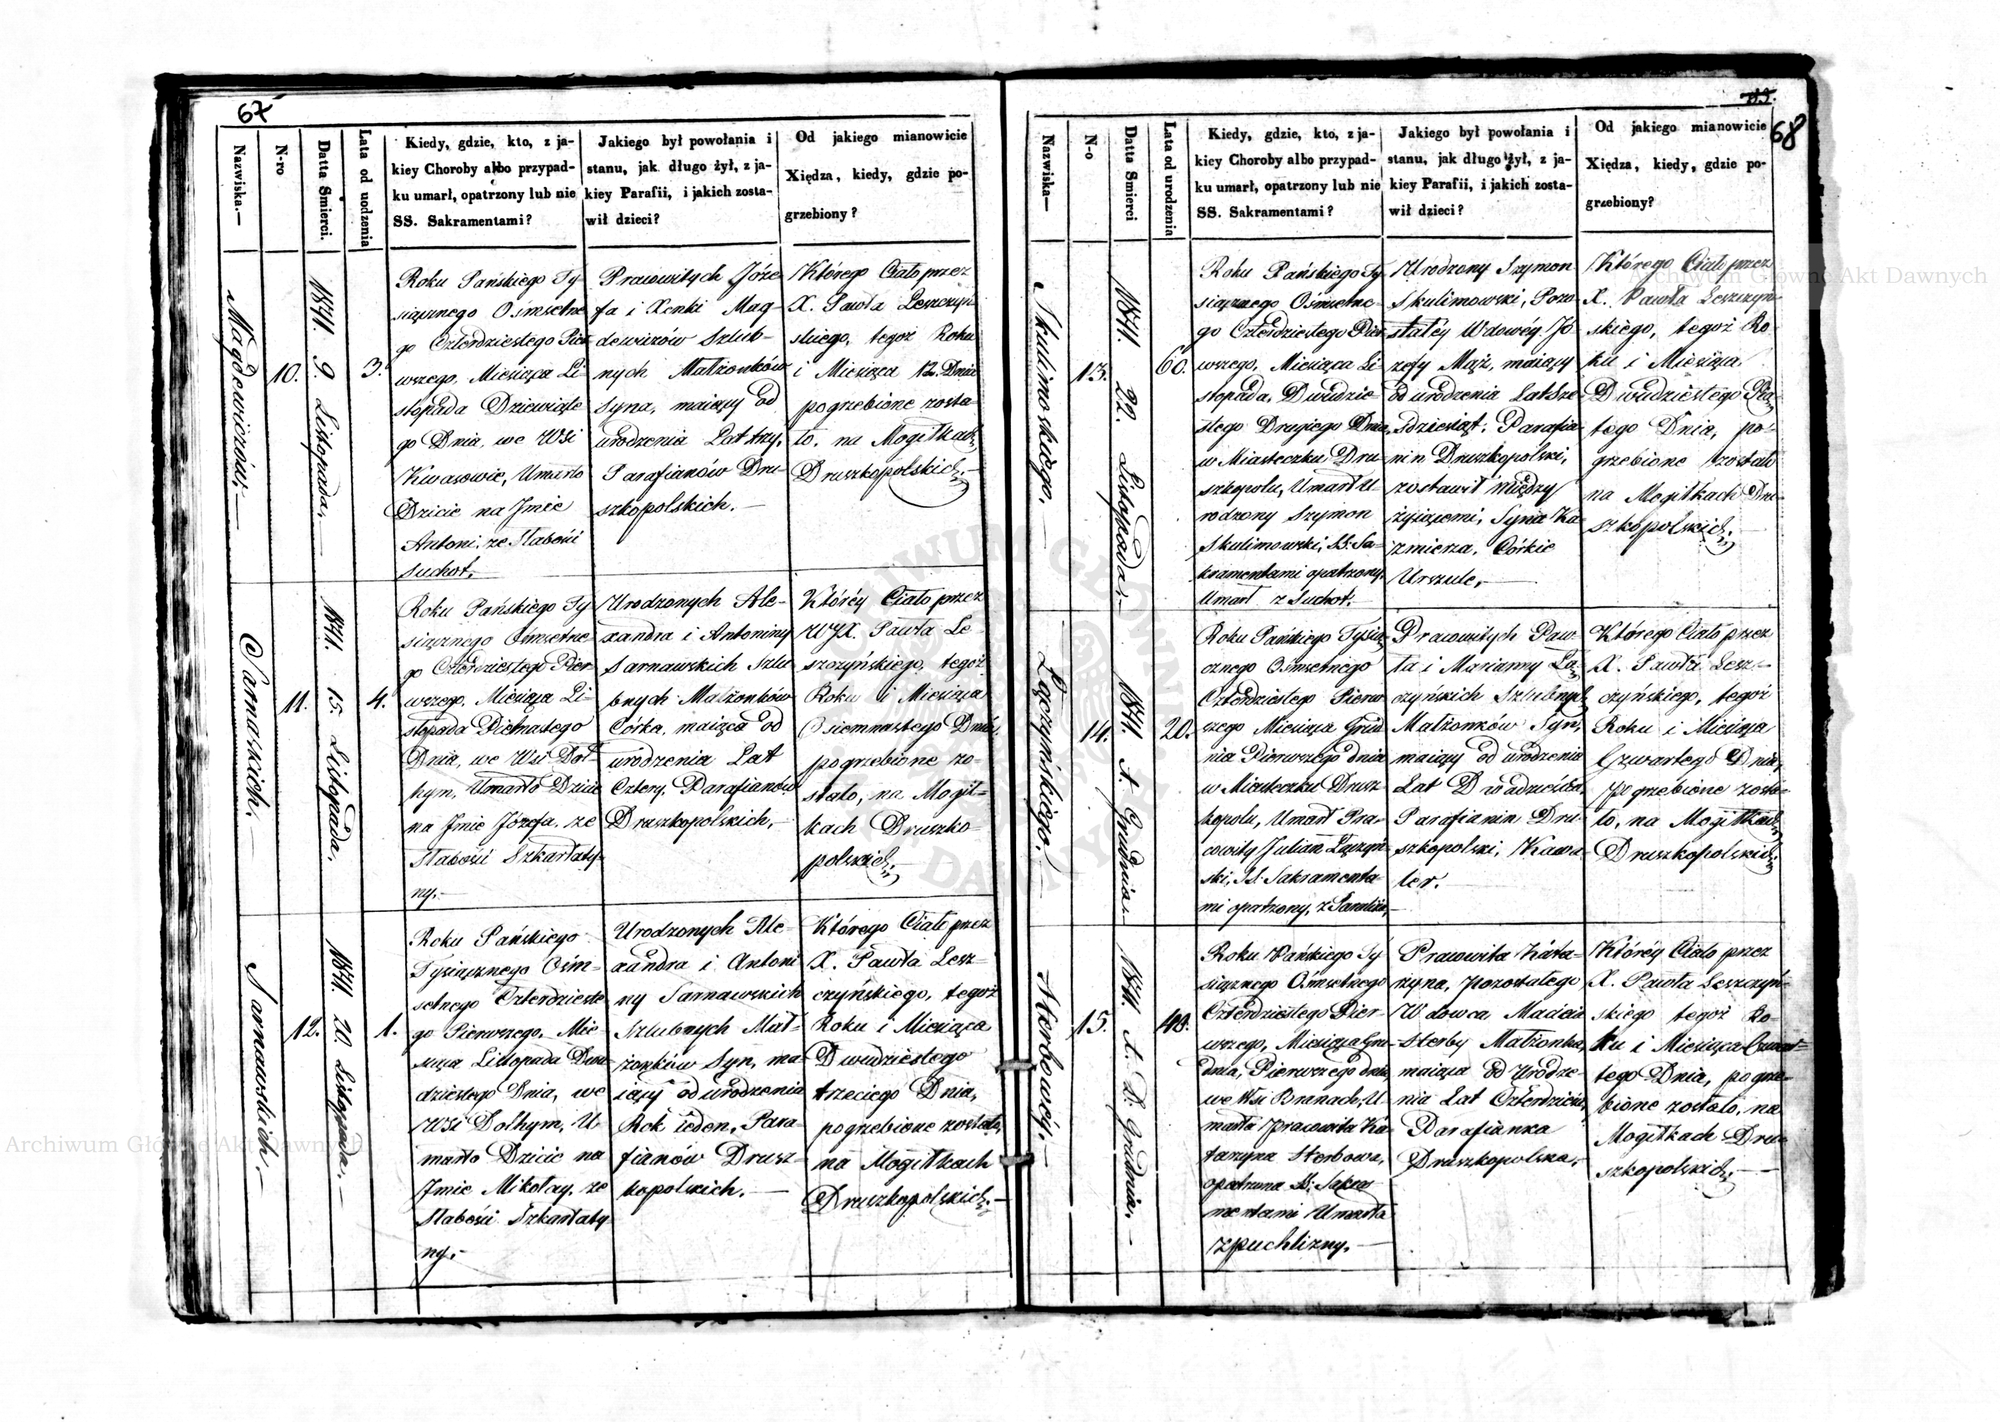 67
Nazwiska.—
N-ro
Datta Śmierci.
Lata od uodzenia
Kiedy, gdzie, kto, z ja-
kiey Choroby albo przypad-
ku umarł, opatrzony lub nie
SS. Sakramentami?
Jakiego był powołania i
stanu, jak długo żył, z ja-
kiey Parafii, i jakich zosta-
wił dzieci?
Od jakiego mianowicie
Xiędza, kiedy, gdzie po-
grzebiony?
Magdewiczów,—
10.
1841. 9. Listopada,—
3.
Roku Pańskiego Ty-
siącznego Ośmsetne
go Czterdziestego Pier
wszego, Miesiąca Li-
stopada Dziewiąte
go Dnia, we Wsi
Kwasowie, Umarło
Dziecie na Jmie
Antoni, ze Słabości
Suchot,
Prawowitych Józe-
fa i Xenki Mag-
dewiczów Szlub-
nych Małżonków
Syna, maiący od
urodzenia Lat trzy,
Parafianów Dru-
szkopolskich.—
Którego Ciało przez
X. Pawła Leszczyń-
skiego, tegoż Roku
i Miesiąca 12. Dnia
pogrzebione zosta-
ło, na Mogiłkach
Druszkopolskich.—
Sarnaskich,
11.
1841. 15. Listopada,
4.
Roku Pańskiego Ty
siącznego Ośmsetne
go Czterdziestego Pier
wszego, Miesiąca Li
stopada Pietnastego
Dnia, we Wsi Doł-
hym, Umarło Dziecie
na Jmie Józefa, ze
Słabości Szkarłaty-
ny.—
Urodzonych Ale-
xandra i Antoniny
Sarnawskich Szlu
bnych Małżonków
Córka, maiąca od
urodzenia Lat
Cztery, Parafianów
Druszkopolskich,—
Któréy Ciało przez
WJX. Pawła Le-
szczyńskiego, tegoż
Roku i Miesiąca
Osiemnastego Dnia,
pogrzebione zo-
stało, na Mogił-
kach Druszko-
polskich,—
Sarnawskich.—
12.
1841. 20. Listopada.—
1.
Roku Pańskiego
Tysiącznego Ośm-
setnego Czterdzieste
go Pierwszego, Mie
siąca Listopada Dwu
dziestego Dnia, we
Wsi Dołhym, U-
marło Dziecie na
Jmie Mikołay, ze
Słabości Szkarłaty
ny.—
Urodzonych Ale-
xandra i Antoni
ny Sarnawskich
Szlubnych Mał-
żonków Syn, ma-
iący od urodzenia
Rok ieden, Para-
fianów Drusz-
kopolskich.—
Którego Ciało przez
X. Pawła Lesz-
czyńskiego, tegoż
Roku i Miesiąca
Dwudziestego
trzeciego Dnia,
pogrzebione zostało,
na Mogiłkach
Druszkopolskich.—
68
Nazwiska—
N-o
Datta Śmierci
Lata od urodzenia
Kiedy, gdzie, kto, z ja-
kiey Choroby albo przypad-
ku umarł, opatrzony lub nie
SS. Sakramentami?
Jakiego był powołania i
stanu, jak długo żył, z ja-
kiey Parafii, i jakich zosta-
wił dzieci?
Od jakiego mianowicie
Xiędza, kiedy, gdzie po-
grzebiony?
Skulimoskiégo.—
13.
1841. 22. Listopada.—
60.
Roku Pańskiego Ty
siącznego Ośmsetne
go Czterdziestego Pier
wszego, Miesiąca Li
stopada, Dwudzie-
stego Drugiego Dnia,
w Miasteczku Dru-
szkopolu, Umarł U-
rodzony Szymon
Skulimowski, SS: Sa-
kramentami opatrzony,
Umarł z Suchot.
Urodzony Szymon
Skulimowski, Pozo
stałéy Wdowéy Jó
zefy Mąż, maiący
od urodzenia Lat Sze
śdziesiąt, Parafia-
nin Druszkopolski,
zostawił między
żyiącemi, Syna Ka
zmierza, Córkie
Urszule,—
Którego Ciało przez
X. Pawła Leszczyń-
skiégo, tegoż Ro-
ku i Miesiąca
Dwudziestego Pią
tego Dnia, po-
grzebione zostało
na Mogiłkach Dru-
szkopolskich,—
Łączyńskiego.—
14.
1841. 1. Grudnia.—
20.
Roku Pańskiego Tysią
cznego Ośmsetnego
Czterdziestego Pierw
szego Miesiąca Grud
nia Pierwszego dnia
w Miasteczku Drusz
kopolu, Umarł Pra-
cowity Julian Łączyń-
ski, SS. Sakramenta-
mi opatrzony, z Paraliżu,
Prawowitych Paw-
ła i Marianny Łą-
czyńskich Szlubnych
Małżonków Syn,
maiący od urodzenia
Lat Dwadzieścia,
Parafianin Dru-
szkopolski, Kawa-
ler.
Którego Ciało przez
X. Pawła Lesz-
czyńskiego, tegoż
Roku i Miesiąca
Czwartego Dnia,
pogrzebione zosta-
ło, na Mogiłkach
Druszkopolskich,
Sterbowéy,—
15.
1841. 1. D: Grudnia.—
40.
Roku Pańskiego Ty
siącznego Ośmsetnego
Czterdziestego Pier-
wszego, Miesiąca Gru
dnia, Pierwszego dnia,
we Wsi Branach, U-
marła Pracowita Ka
tarzyna Sterbowa,
opatrzona SS: Sakra
mentami Umarła
z puchlizny.—
Pracowita Kata-
rzyna, pozostałego
Wdowca Macieia
Sterby Małżonka,
maiąca od Urodze-
nia Lat Czterdzieści,
Parafianka
Druszkopolska,—
Któréy Ciało przez
X. Pawła Leszczyń-
skiego tegoż Ro-
ku i Miesiąca Czwar-
tego Dnia, pogrze-
bione zostało, na
Mogiłkach Dru-
szkopolskich,—
Archiwum Główne Akt Dawnych
Archiwum Główne Akt Dawnych
ARCHIWUM GŁÓWNE AKT DAWNYCH